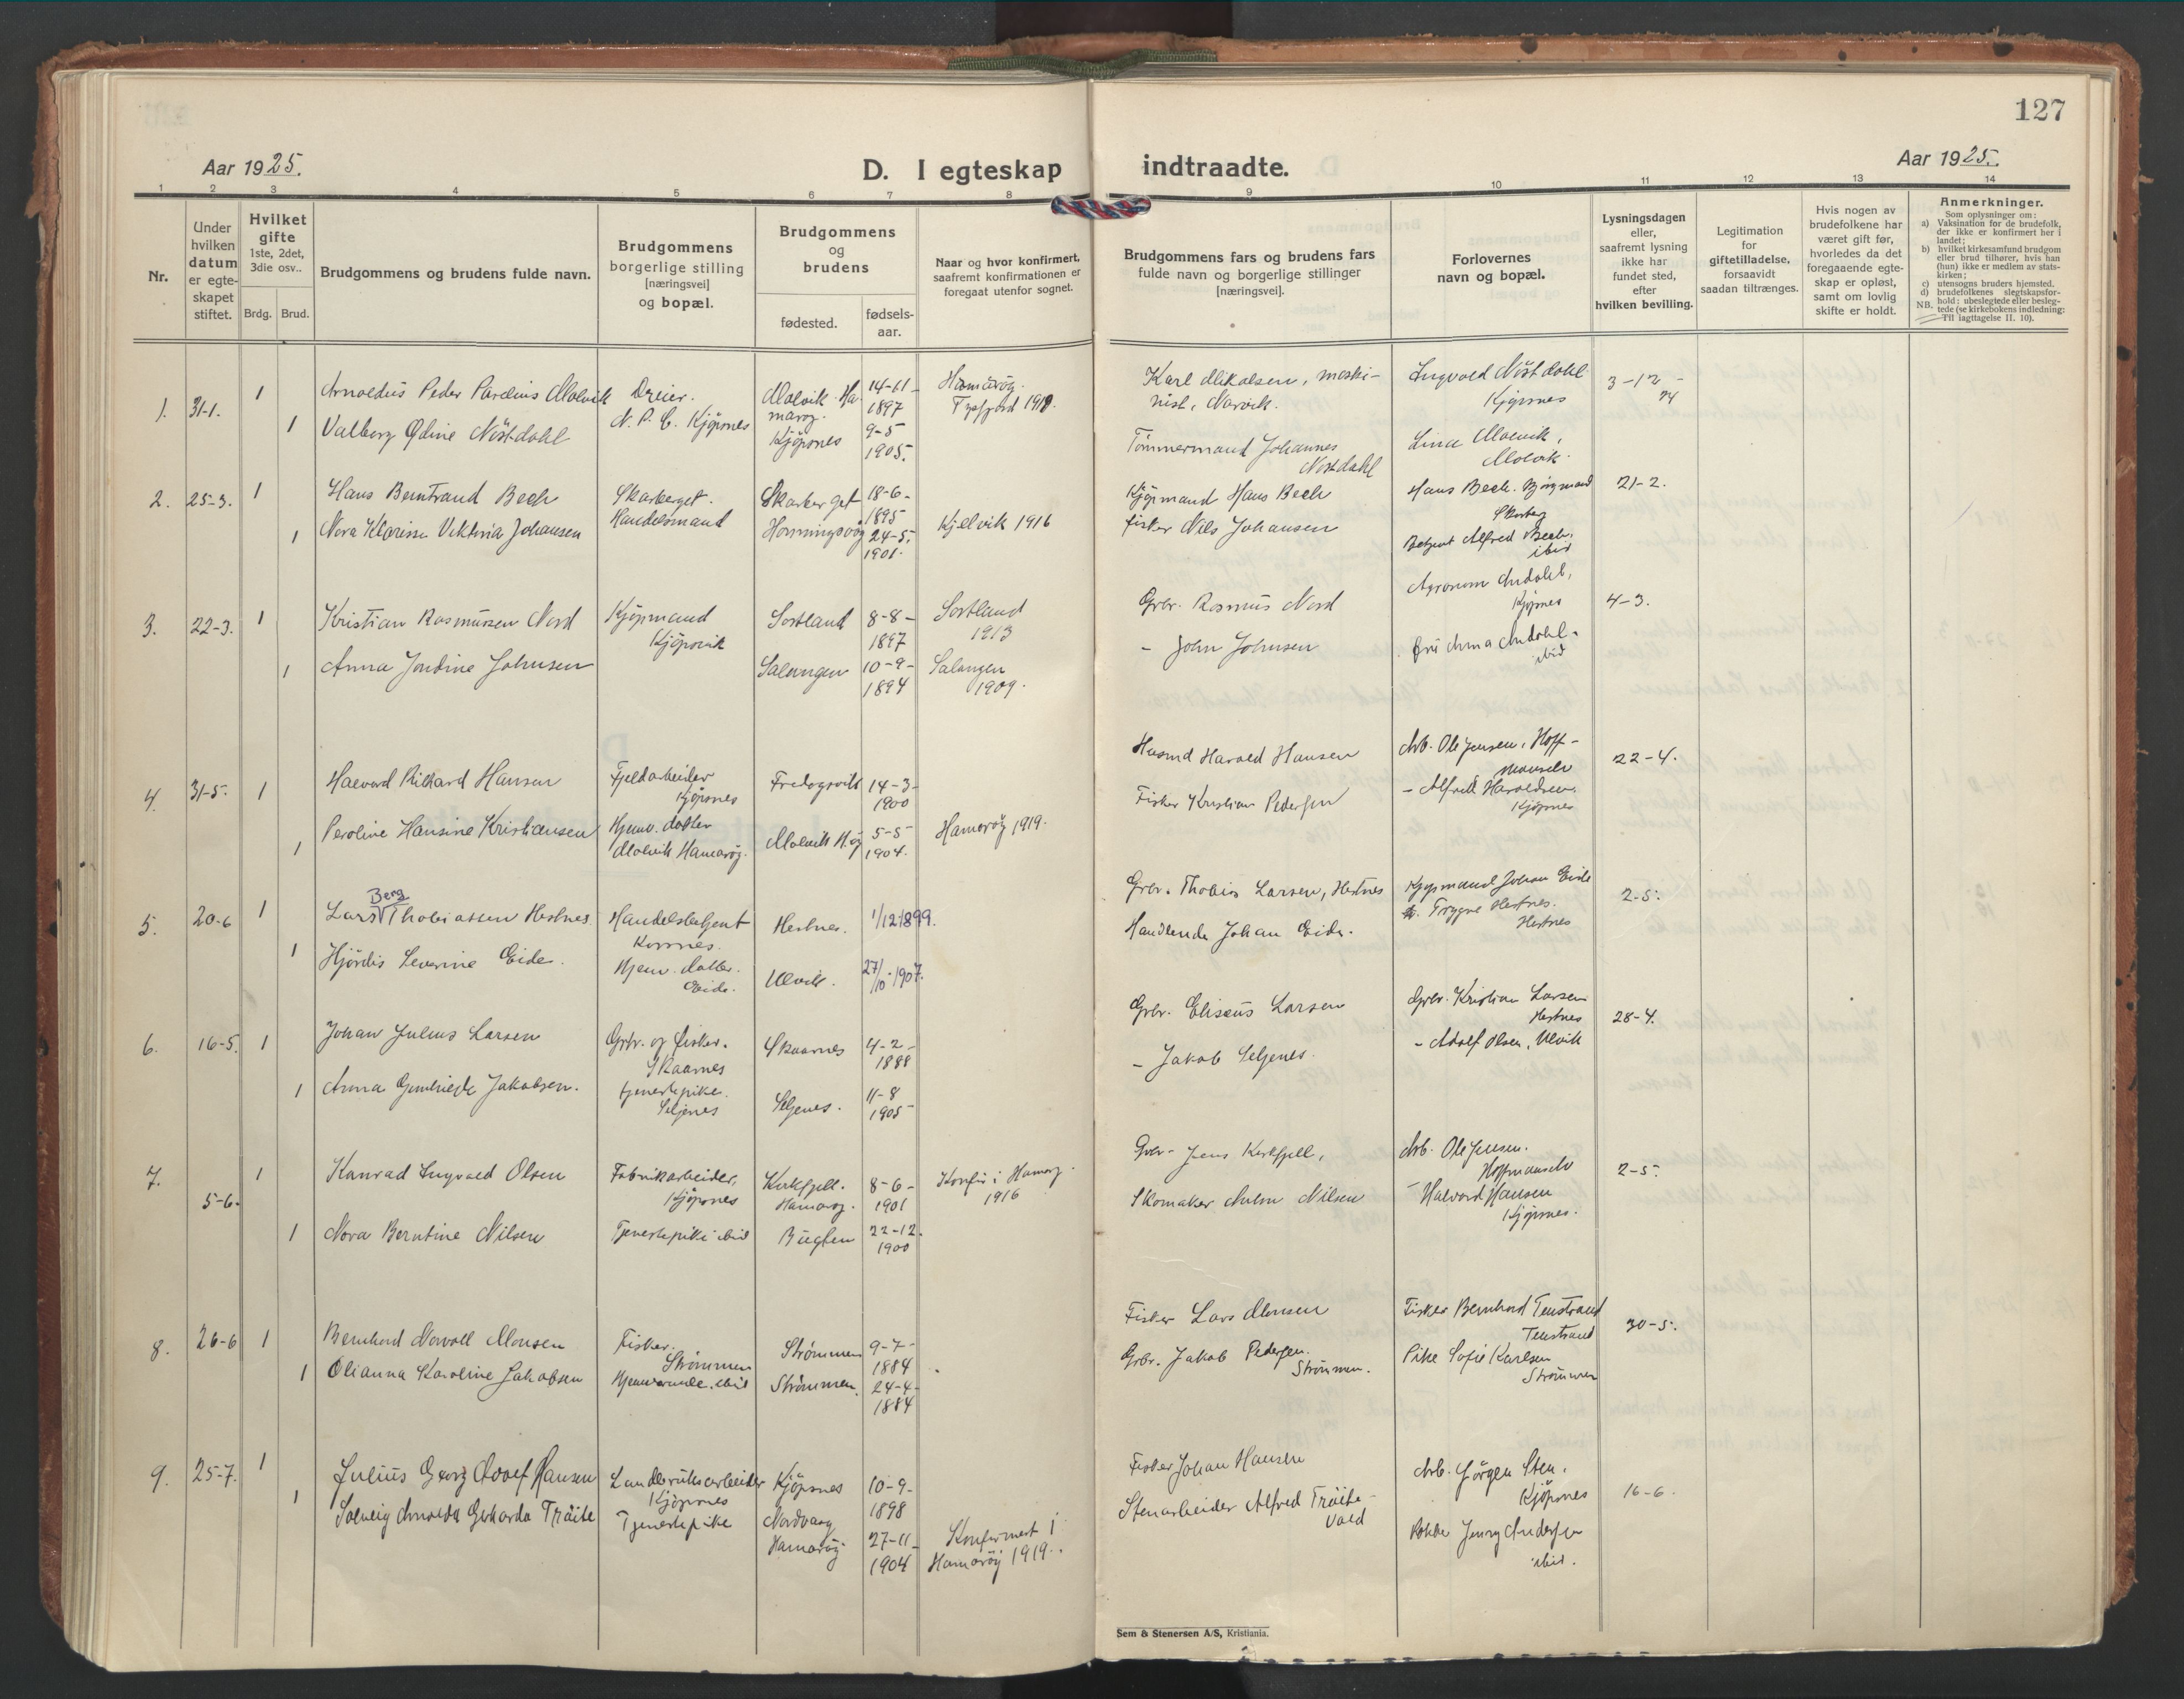 127
Aar 1925.
D. I egteskap indtraadte.
Aar 1925.
1 2 3 4 5 6 7 8 9 10 11 12 13 14
Nr.
Under
hvilken
datum
er egte-
skapet
stiftet.
Hvilket
gifte
1ste, 2det,
3die osv..
Brdg. Brud.
Brudgommens og brudens fulde navn.
Brudgommens
borgerlige stilling
[næringsvei]
og bopæl.
Brudgommens
og
brudens
fødested.
fødsels-
aar.
Naar og hvor konfirmert,
saafremt konfirmationen er
foregaat utenfor sognet.
Brudgommens fars og brudens fars
fulde navn og borgerlige stillinger
[næringsvei].
Forlovernes
navn og bopæl.
Lysningsdagen
eller,
saafremt lysning
ikke har
fundet sted,
efter
hvilken bevilling.
Legitimation
for
giftetilladelse,
forsaavidt
saadan tiltrænges.
Hvis nogen av
brudefolkene har
været gift før,
hvorledes da det
foregaaende egte-
skap er opløst,
samt om lovlig
skifte er holdt.
Anmerkninger.
Som oplysninger om:
a) Vaksination for de brudefolk,
der ikke er konfirmert her i
landet;
b) hvilket kirkesamfund brudgom
eller brud tilhører, hvis han
(hun) ikke er medlem av stats-
kirken;
c) utensogns bruders hjemsted.
d) brudefolkenes slegtskapsfor-
hold: ubeslegtede eller besleg-
tede (se kirkebokens indledning:
NB. Til iagttagelse II. 10).
1. 31-1. 1
Arnoldus Peder Parelius Molvik
Dreier.
N. P. C. Kjöpsnes
Molvik. Ha-
maröy.
14-11-
1897
Hamaröy.
Tysfjord
Karl Mikalsen, maski-
nist, Narvik.
Ingvald Nöstdahl
Kjöpsnes
3-12-
24
1
Valborg Odine Nöstdahl
Kjöpsnes
9-5
1905.
Tömmermand Johannes
Nöstdahl
Lina Molvik,
Molvik.
2. 25-3. 1
Hans Berntrand Bech
Skarberget.
Handelsmand
Skarberget
18-6-
1895
Kjöpmand Hans Bech
Hans Bech.
21-2.
1
Nora Klarissa Viktoria Johansen
Honningsvåg
24-5.
1901.
Kjelvik 1916
fisker Nils Johansen
Betjent Alfred Bech,
ibid
3. 22-3. 1
Kristian Rasmussen Nord
Kjöpmand
Kjöpsvik
Sortland
8-8-
1897
Sortland
1913
Grbr. Rasmus Nord
Agronom Andahl,
Kjöpsnes
4-3.
1
Anna Jordine Johnsen
Salangen
10-9-
1894
Salangen
1909.
- John Johnsen
Fru Anna Andahl.
ibid
4. 31-5. 1
Halvard Rikhard Hansen
Fjeldarbeider
Kjöpsnes
14-3-
1900
Husmd Harald Hansen
Arb. Ole Jensen, Hoff-
mannselv
22-4.
1
Peroline Hansine Kristiansen
Hjemv. datter
Molvik Hamaröy.
Molvik H.öy
5-5
1904.
Hamaröy 1919.
Fisker Kristian Pedersen
- Alfred Haraldsen.
Kjöpsnes
5. 20-6 1
Berg
Lars Thobiassen Hestnes.
Handelsbetjent
Korsnes.
Hestnes.
1/12 1899.
Grbr. Thobias Larsen, Hestnes
Kjöpmand Johan Eide
2-5.
1
Hjördis Severine Eide.
Hjemv. datter.
Eide.
Ulvik.
27/10.1907.
Handlende Johan Eide.
Trygve Hestnes.
Hestnes
6. 16-5. 1
Johan Julius Larsen
Grbr. og fisker.
Skaarnes
Skaarnes
4-2-
1888
Grbr. Eliseus Larsen
Grbr. Kristian Larsen
Hestnes
28-4.
1
Anna Jakobsen.
tjenestepike.
Seljenes
Seljenes.
11-8
1905
- Jakob Seljenes.
- Adolf Olsen, Ulvik
7. 5-6. 1
Konrad Ingvald Olsen
Fabrikarbeider,
Kjöpsnes
Kirkfjell.
Hamaröy.
8-6-
1901
Konfir i Hamaröy.
1916
Grbr- Jens Kirkfjell,
Arb. Ole Jensen.
Hoffmanselv
2-5.
1
Nora Berntine Nilsen
Tjenestepike ibid
22-12.
1900
Skomaker Anton Nilsen
- Halvard Hansen
Kjöpsnes.
8. 26-6 1
Bernhard Norvall Monsen
Fisker.
Strömmen
Strömmen
9-7-
1884
Fisker Lars Monsen
Fisker Bernhard Tenstrand
Tenstrand
30-5.
1
Olianna Karoline Jakobsen
Hjemværende. ibid
Strömmen.
24-4-
1884
Grbr. Jakob Pedersen.
Strömmen.
Pike Sofie Karlsen
Strömmen
9. 25-7. 1
Julius Georg Adolf Hansen
Landbruksarbeider
Kjöpsnes
Kjöpsnes
10-9-
1898
Fisker Johan Hansen
Arb. Jörgen Sten,
Kjöpsnes
16-6.
1
Solveig Arnolda Gerharda Tröite
Tjenestepike
Hamaröy
27-11-
1904
Konfirmert i
Hamaröy 1919.
Stenarbeider Alfred Tröite-
vold
Jenny Andersen
ibid.
Sem & Stenersen A/S, Kristiania.